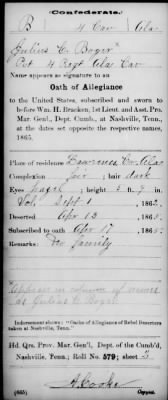 Confederate.
B 4 Cav Ala.
Julius C. Boger
Pvt 4 Regt Ala Cav
Name appears as signature to an
Oath of Allegiance
to the United States, subscribed and sworn to
before Wm. H. Bracken, 1st Lieut. and Asst. Pro.
Mar. Gen'l, Dept. Cumb., at Nashville, Tenn.,
at the dates set opposite the respective names,
1865.
Place of residence Lawrence Co. Ala
Complexion fair; hair dark
Eyes hazel; height 5 ft. 9 in.
Vol. Sept 1, 1862.
Deserted Apr 13, 1865.
Subscribed to oath Apr 17, 1865.
Remarks: No family
Appears in column of names
as Julius C. Boger
Indorsement shows: "Oaths of Allegiance of Rebel Deserters
taken at Nashville, Tenn."
Hd. Qrs. Pro. Mar. Gen'l, Dept. of the Cumb'd,
Nashville, Tenn.; Roll No. 579; sheet 2
A. Cooke
(665) Copyist.